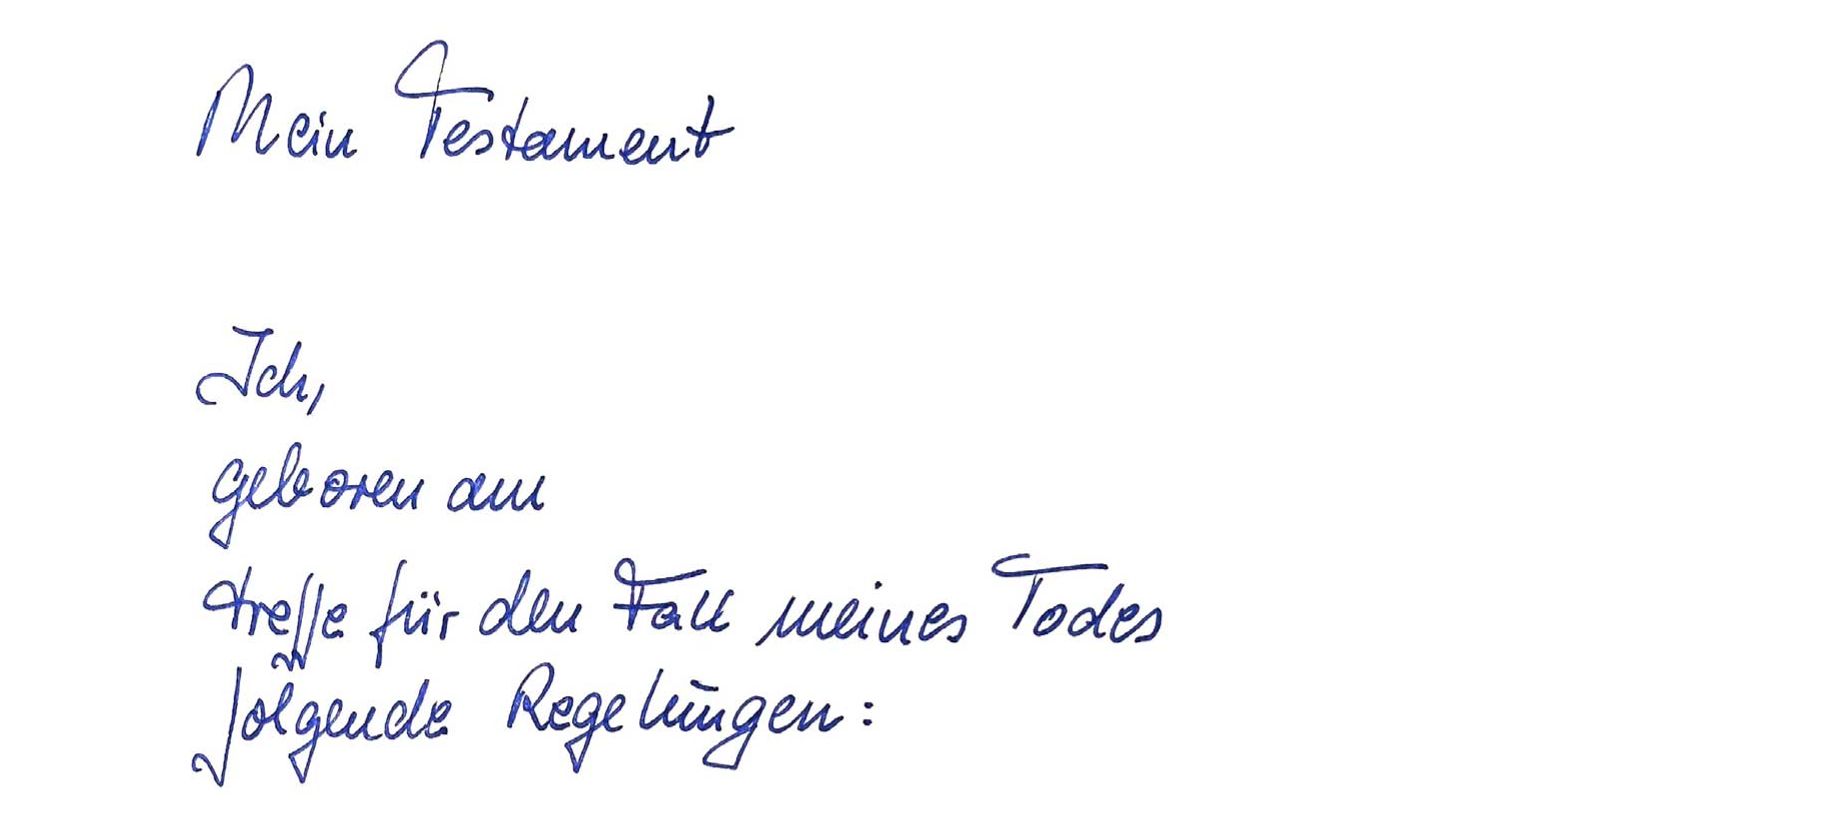 Mein Testament
Ich,
geboren am
treffe für den Fall meines Todes
folgende Regelungen: